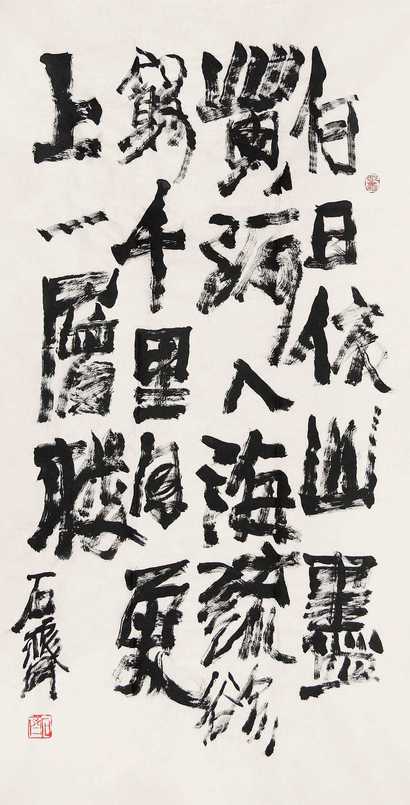 白日依山盡
黃河入海流欲
窮千里目更
上一層樓
石齊